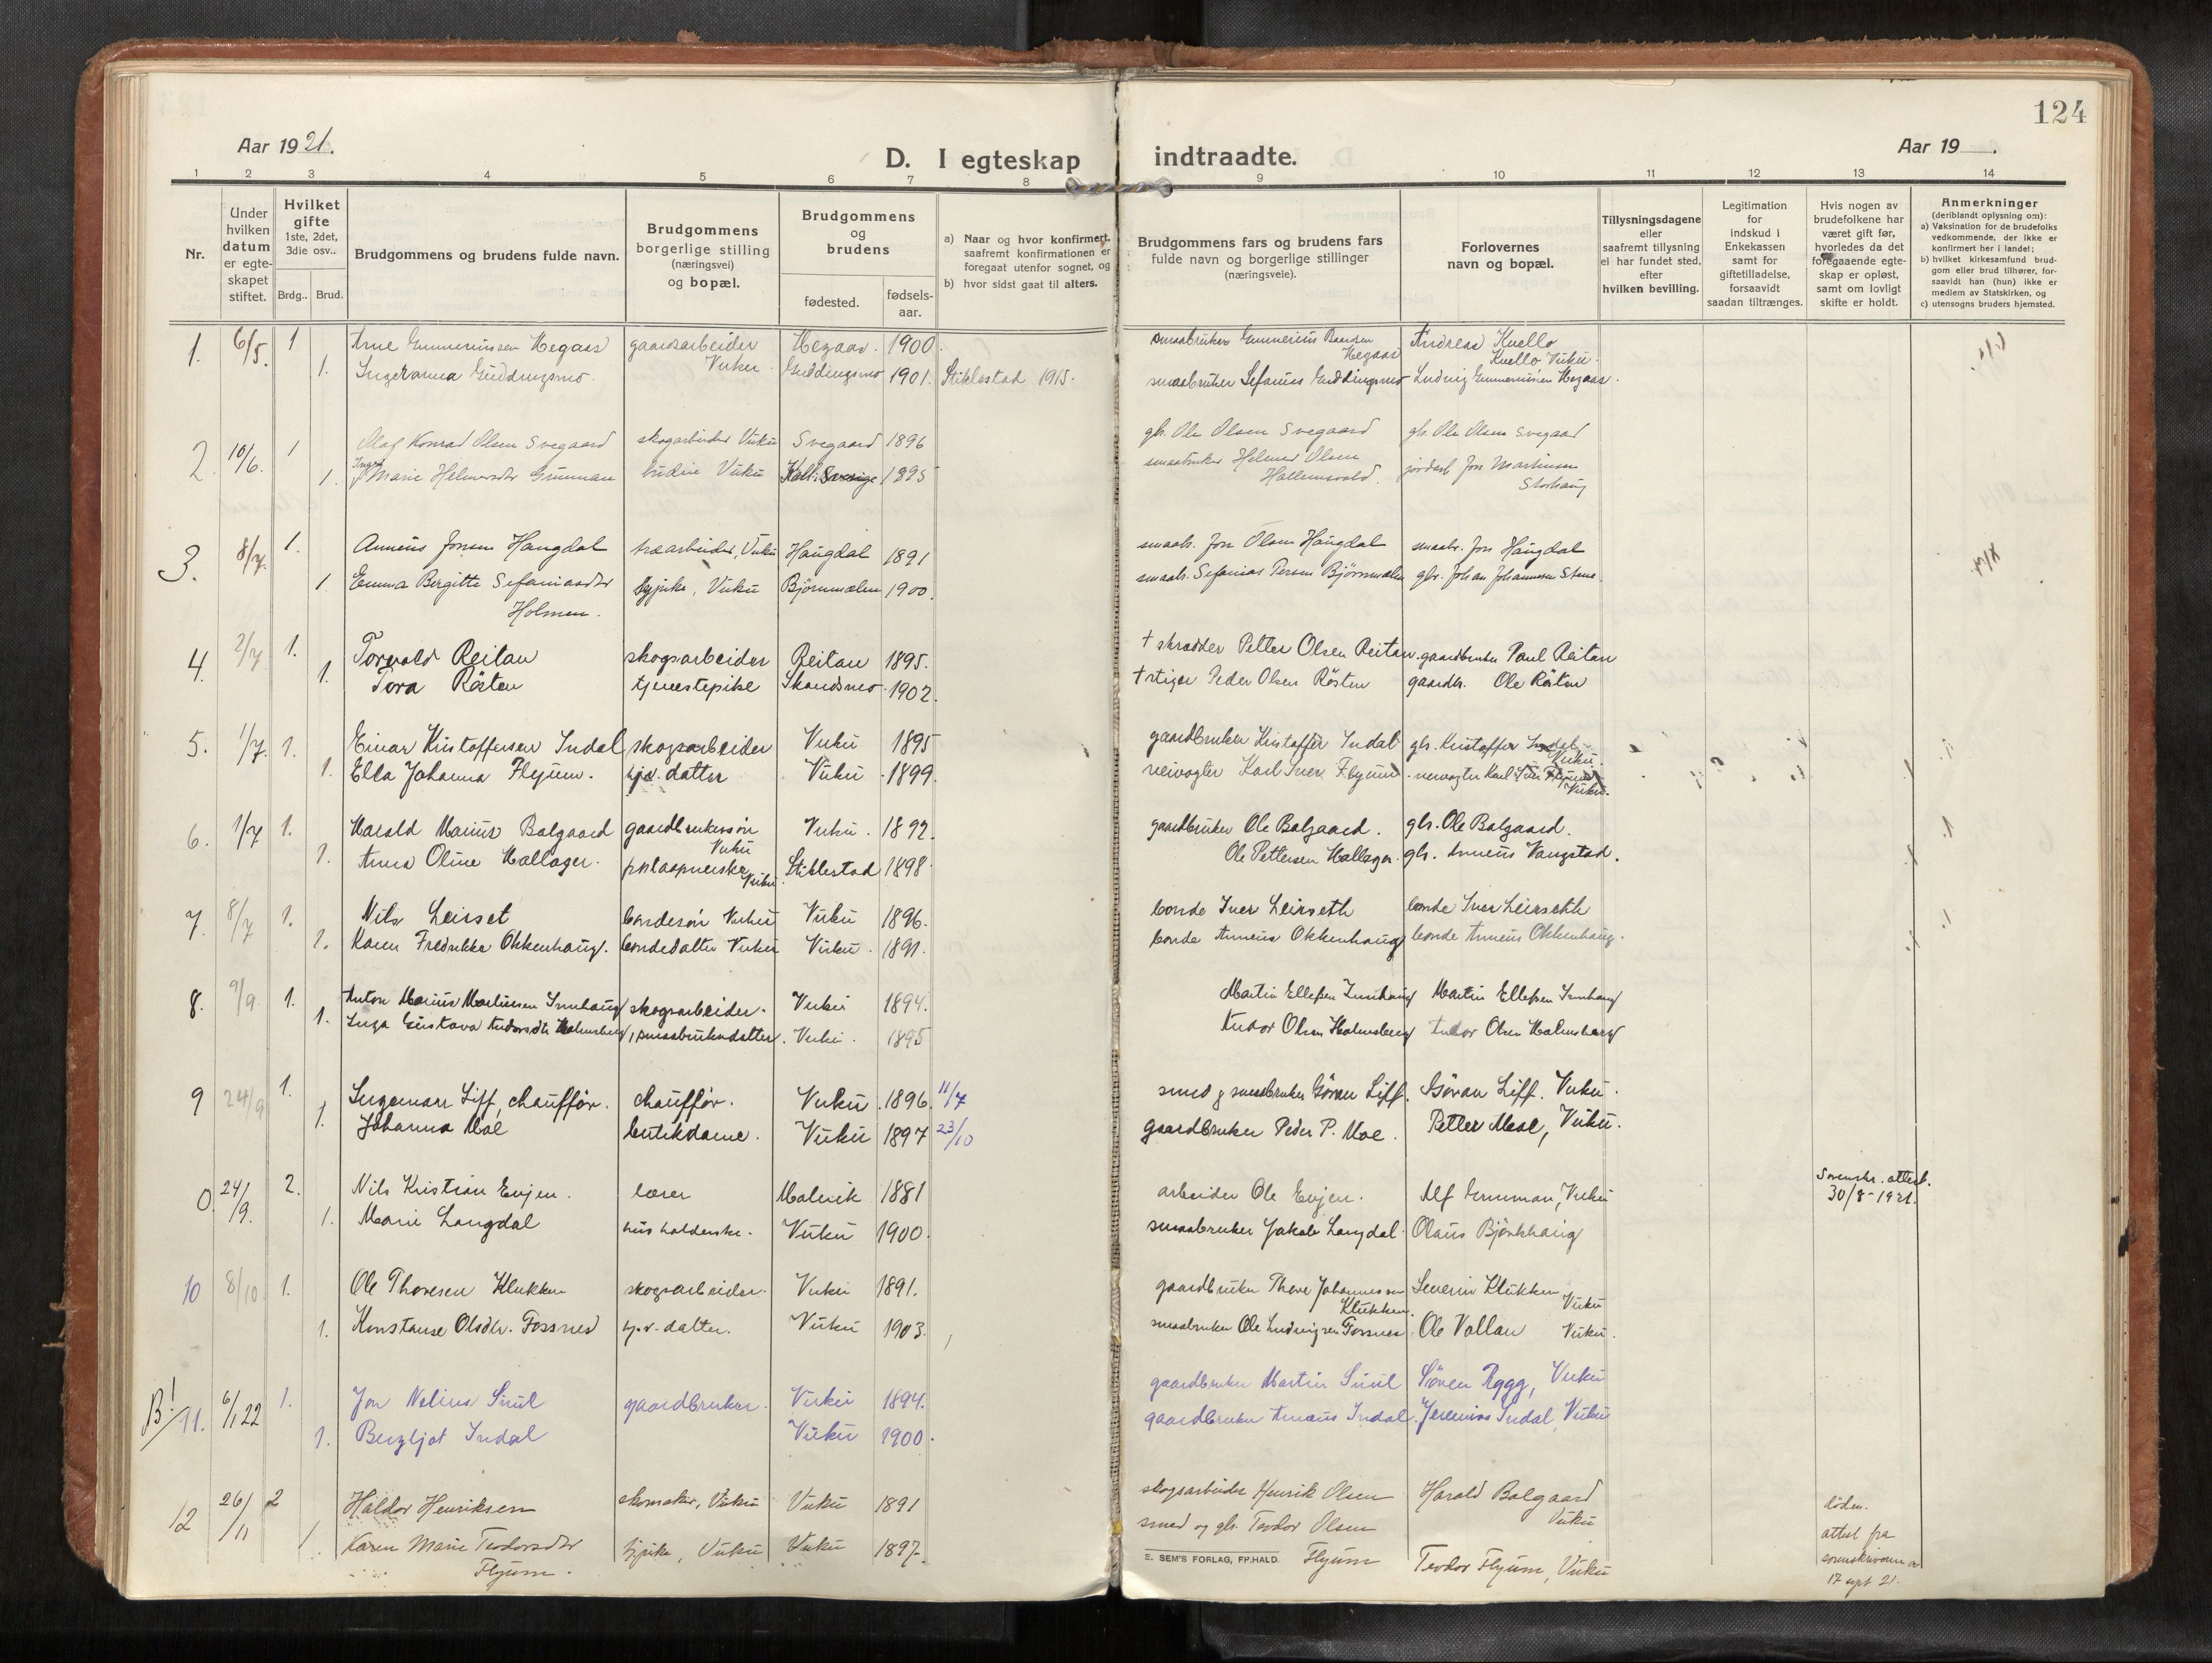 124
Aar 1921.
D. I egteskap indtraadte.
Aar 19 .
1 2 3 4 5 6 7 8 9 10 11 12 13 14
Nr.
Under hvilken datum er egte-skapet stiftet.
Hvilket gifte 1ste, 2det, 3die osv..
Brdg.. Brud.
Brudgommens og brudens fulde navn.
Brudgommens borgerlige stilling (næringsvei) og bopæl.
Brudgommens og brudens
fødested.
fødsels-aar.
a) Naar og hvor konfirmert, saafremt konfirmationen er foregaat utenfor sognet, og
b) hvor sidst gaat til alters.
Brudgommens fars og brudens fars fulde navn og borgerlige stillinger (næringsveie).
Forlovernes navn og bopæl.
Tillysningsdagene eller saafremt tillysning ei har fundet sted, efter hvilken bevilling.
Legitimation for indskud i Enkekassen samt for giftetilladelse, forsaavidt saadan tiltrænges.
Hvis nogen av brudefolkene har været gift før, hvorledes da det foregaaende egte-skap er opløst, samt om lovligt skifte er holdt.
Anmerkninger (deriblandt oplysning om):
a) Vaksination for de brudefolks vedkommende, der ikke er konfirmert her i landet;
b) hvilket kirkesamfund brud-gom eller brud tilhører, for-saavidt han (hun) ikke er medlem av Statskirken, og
c) utensogns bruders hjemsted.
1. 6/5. 1 Arne Gunneriussen Hegaas gaardsarbeider Vuku Hegaas. 1900. smaabruker Gunnerius Hegaas Andreas Kvello Kvello Vuku.
1. Ingeranna Guddingsmo. Guddingsmo 1901. Stiklestad 1915. smaabruker Sefanias Guddingsmo Ludvig Gunneriussen Hegaas.
2. 10/6. 1 Olaf Konrad Olsen Svegaard skogarbeider Vuku Svegaard 1896 gb. Ole Olsen Svegaard gb. Ole Olsen Svegaard
1. Inger Marie Helmersdtr Grunnan budeie Vuku Kall. Sverige 1895 smaabruker Helmer Olsen Hallemsvald. jordarb Jon Martinsen Storhaug
3. 8/7. 1. Anneus Jonsen Haugdal træarbeider, Vuku Haugdal 1891 smaab. Jon Olsen Haugdal smaabr. Jon Haugdal
1. Emma Bergitte Sefaniasdtr Holmen. Vuku Bjørnmælen 1900. smaab. Sefanias Bjørnmælen gbr. Johan Johannesen Stene.
4. 2/7. 1. Torvald Reitan skogsarbeider Reitan 1895. † skrædder Petter Olsen Reitan. gaardbruker Paul Reitan
1. Tora Røsten tjenestepike Skandsmo. 1902. † stiger Peder Olsen Røsten gaardbr. Ole Røsten
5. 1/7. 1. Einar Kristoffersen Indal skogsarbeider Vuku 1895 gaardbruker Kristoffer Indal gb. Kristoffer Indal Vuku.
1. Ella Johanna Flyum. hjv. datter Vuku 1899. veivogter Karl Iver Flyum. veivogter Karl Iver Flyum Vuku.
6. 1/7 1. Harald Marius Balgaard gaardbrukersøn Vuku Vuku. 1892. gaardbruker Ole Balgaard. gb. Ole Balgaard.
1. Anna Oline Hallager. Vuku Stiklestad 1898. Ole Pettersen Hallager. gb. Anneus Vangstad.
7. 8/7 1. Nils Leirset bondesøn Vuku Vuku 1896. bonde Iver Leirseth bonde Iver Leirseth
1. Karen Fredrikke Okkenhaug. bondedatter Vuku Vuku. 1891. bonde Anneus Okkenhaug bonde Anneus Okkenhaug.
8. 9/9. 1. Anton Marius Martinsen Innhaug skogsarbeider. Vuku 1894. Martin Ellefsen Innhaug Martin Ellefsen Innhaug
1. Inga Gustava Andorsdtr Holmsberg, smaabrukerdatter. Vuku. 1895 Andor Olsen Holmsberg Andor Olsen Holmsberg
9 24/9 1. Ingemar Liff, chauffør. chauffør. Vuku. 1896. 11/7 smed og smaabruker Gøran Liff. Gøran Liff. Vuku.
1. Johanna Moe butikdame. Vuku 1897 23/10 gaardbruker Peder P. Moe. Petter Moe, Vuku.
0. 24/9. 2. Nils Kristian Evjen. lærer Malvik 1881 arbeider Ole Evjen. Alf Grunnan, Vuku Sorenskr. attest. 30/8-1921.
1. Marie Langdal husholderske. Vuku 1900. smaabruker Jakob Langdal. Olaus Bjørkhaug
10 8/10. 1. Ole Thoresen Klukken skogsarbeider. Vuku 1891. gaardbruker Thore Johannessen Klukken. Severin Klukken Vuku
1. Konstanse Olsdtr. Fossnes hjv. datter. Vuku 1903. smaabruker Ole Ludvigsen Fossnes. Ole Vollan Vuku.
B! 11. 6/1 22 1. Jon Nelius Suul gaardbruker. Vuku 1894. gaardbruker Martin Suul Søren Rygg, Vuku
1. Bergljot Indal Vuku 1900. gaardbruker Anneus Indal. Jeremias Indal, Vuku
12 26/11 2 Haldor Henriksen skomaker, Vuku Vuku 1891 skogsarbeider Henrik Olsen Harald Balgaard Vuku døden. attest fra sorenskriveren av 17 sept 21.
1. Karen Marie Teodorsdtr Flyum. Vuku Vuku 1897. smed og gb. Teodor Olsen Flyum Teodor Flyum, Vuku
E. SEM'S FORLAG, FR.HALD.